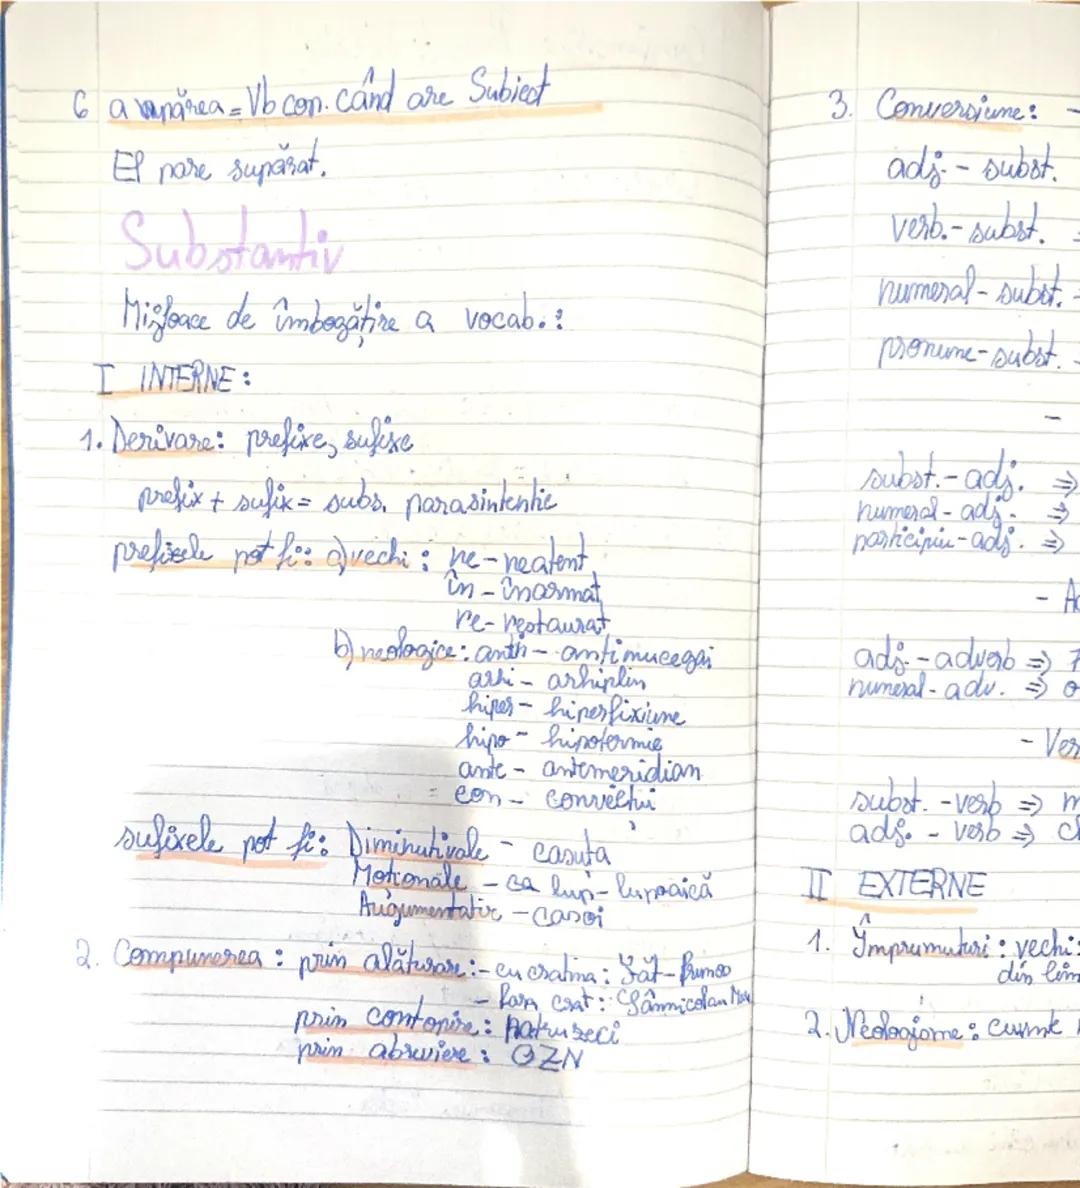 6 a părea = Vb cop. când are Subiect
El pare supărat.
Substantiv
Mijloace de îmbogățire a vocab.:
I INTERNE:
1. Derivare: prefixe, sufixe
prefix + sufix = subs. parasintentic
prefixele pot fi: a) vechi: ne - neatent
în - înarmat
re - restaurat
b) neologice: anti - antimucegai
arhi - arhiplin
hiper - hiperfixiune
hipo - hipotermie
ante - antemeridian
con - conviețui
sufixele pot fi: Diminutivale - casuța
Moționale - ca lup - lupoaică
Augumentativ - casoi
2. Compunerea: prin alăturare: - cu cratima: Făt-Frumos
- fara crat: Sânnicolau Mare
prin contopire: patruzeci
prin abreviere: OZN
3. Conversiune: -
adj. - subst.
verb. - subst. =
numeral - subst. -
pronume - subst. -
-
subst. - adj. ⇒
numeral - adj. ⇒
participiu - adj. ⇒
- Ad
adj. - adverb ⇒
numeral - adv. ⇒ o
- Ver
subst. - verb ⇒ m
adj. - verb ⇒ ch
II EXTERNE
1. Împrumuturi: vechi:
din lim
2. Neologisme: cuvinte